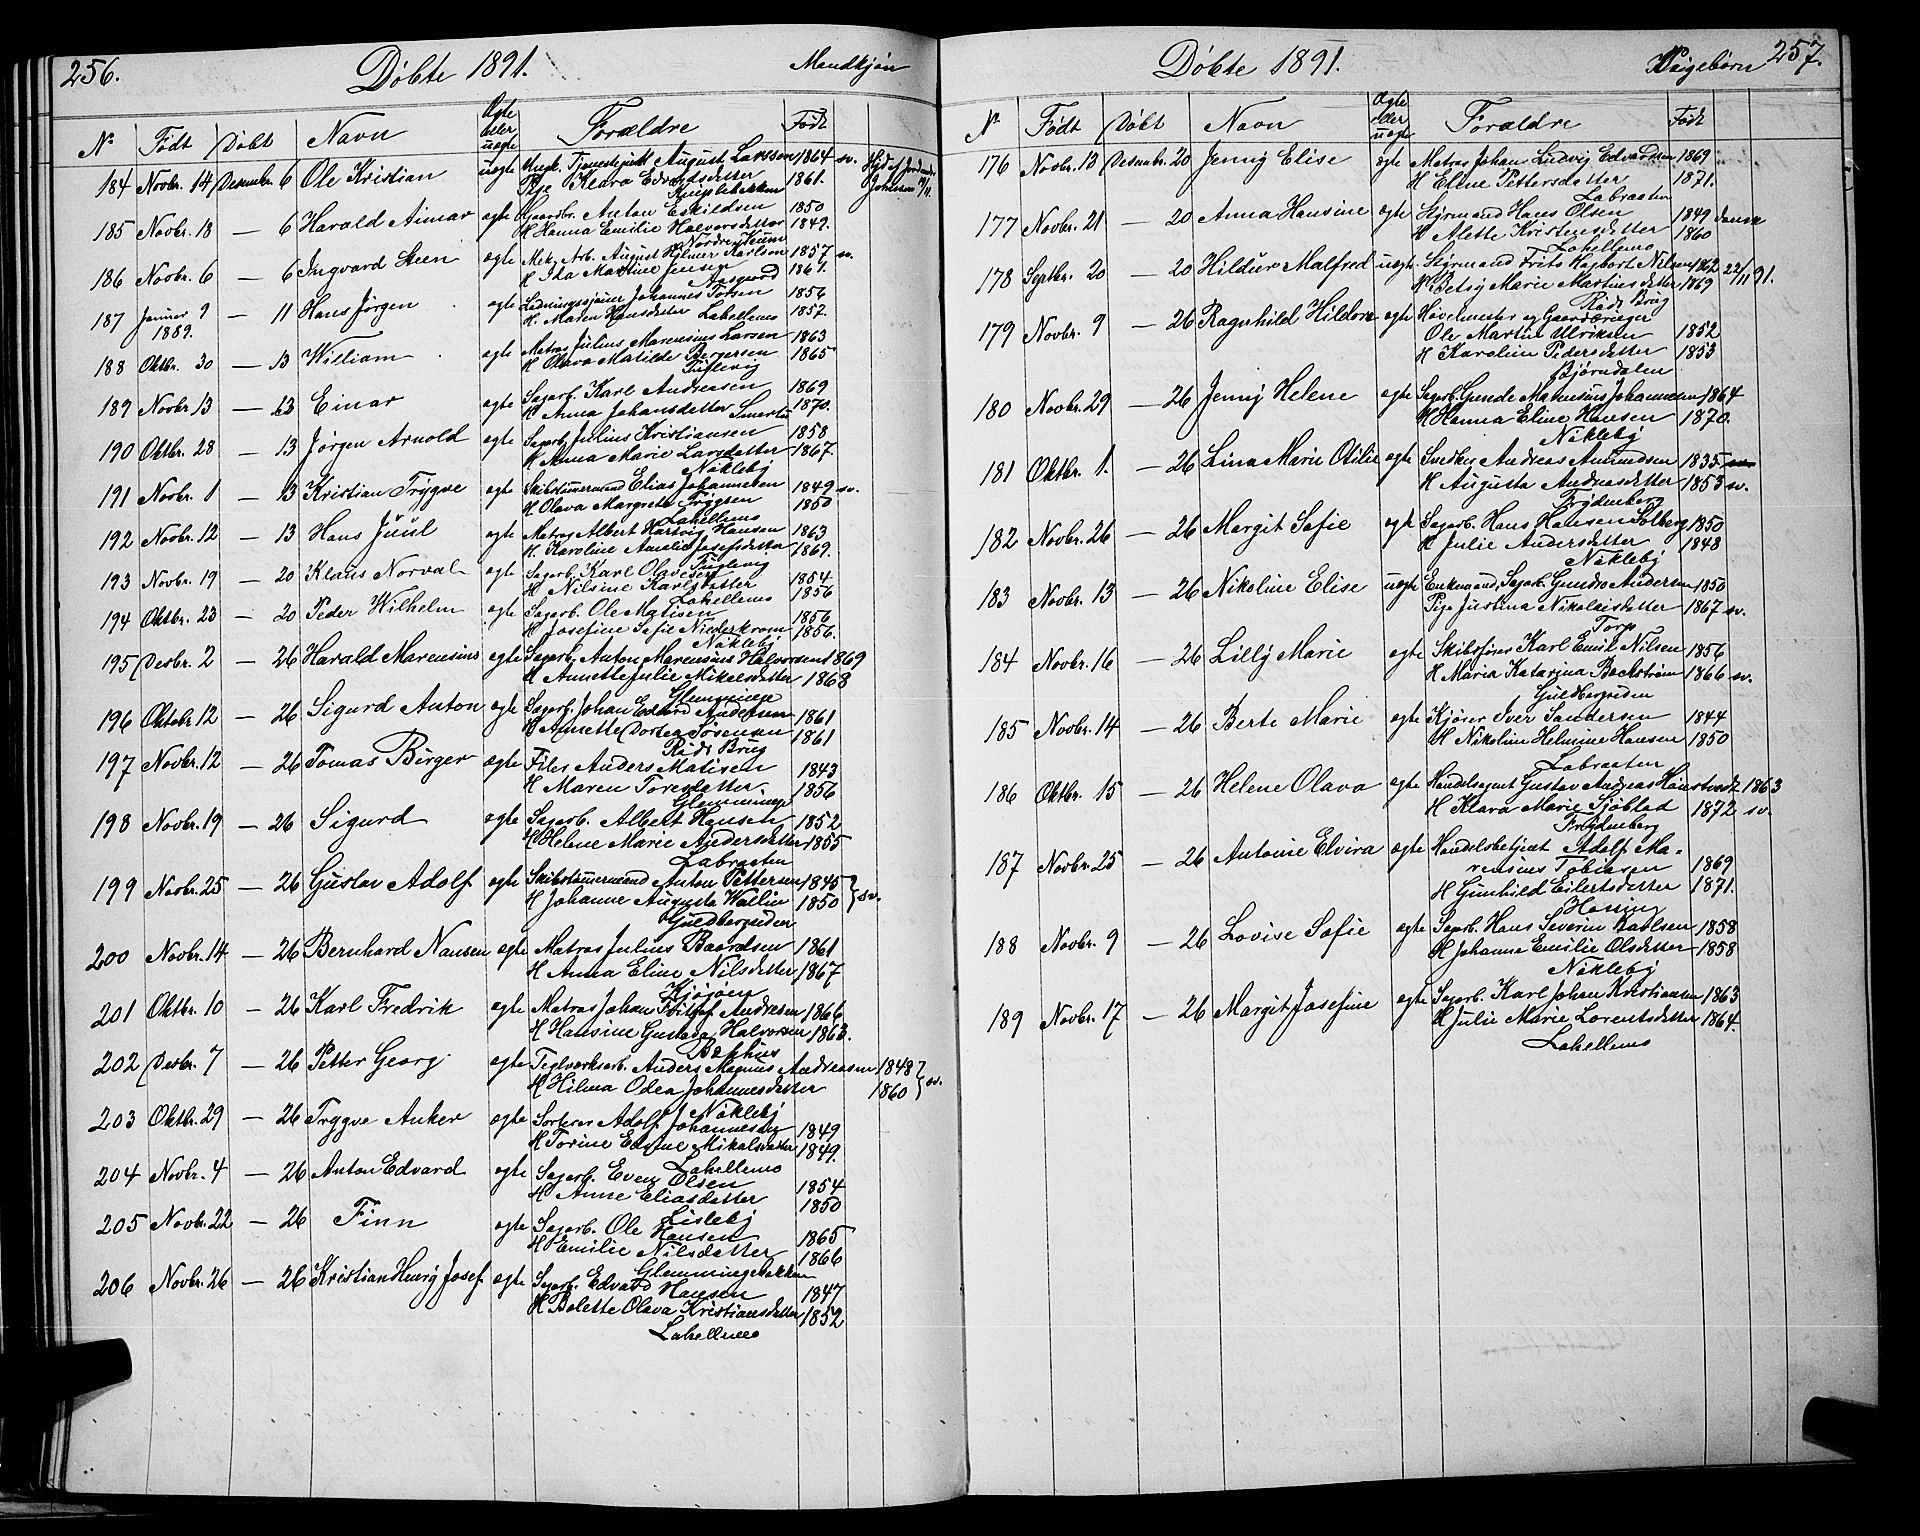 256.
Døbte 1891.
Mandkjøn
No Født Døbt Navn Ægte eller uægte Forældre Født
184 Novbr. 14 Desembr. 6 Ole Kristian uægte Ungk. Tjenestegutt August Larsson 1864 sv.
Pige Klara Edvardsdatter 1861.
185 Novbr. 18 — 6 Harald Aimar ægte Gaardbr. Anton Eskildsen 1850
H Hanna Emilie Halvorsdatter 1849.
186 Novbr. 6 — 6 Ingvard Steen ægte Mek. Arb. August Hilmer Karlson 1857 sv.
H Ida Martine Jensen 1861.
187 Januar 9 1889. — 11 Hans Jørgen ægte Johannes
H. Maren Hansdatter Lahellemo 1856 1857.
188 Oktbr. 30 — 13 William ægte Matros Julius Marensius Larsen 1863
H Olava Matilde Bergersen 1865
189 Novbr. 13 — 13 Einar ægte Sagarb. Karl Andreasen 1869
H Anna Johansdatter Smertu 1870.
190 Oktbr. 28 — 13 Jørgen Arnold ægte Sagarb. Julius Kristiansen 1858
H Anna Marie Larsdatter 1867.
Nøkleby
191 Novbr. 1 — 13 Kristian Trygve ægte Skibstømermand Elias Johannesen 1849 sv.
H Olava Margrete Trygsen 1850
Lahellemo
192 Novbr. 12 — 13 Hans Juul ægte Matros Albert Hartvig Hansen 1863
H. Karoline Amalie Josefsdatter 1869.
193 Novbr. 19 — 20 Klaus Norval ægte Sagarb. Karl Olavesen 1854
H Nilsine Karlsdatter 1856
Lahellemo
194 Oktbr. 23 — 20 Peder Wilhelm ægte Sagarb. Ole Matisen 1856
H Josefine Sofie Niederkrom 1856.
Nøkleby
195 Desbr. 2 — 26 Harald Marensius ægte Sagarb. Anton Marensius Halvorsen 1869
H Annette Julie Mikalsdatter 1868
Glemminge
196 Oktobr. 12 — 26 Sigurd Anton ægte Sagarb. Johan Edvard Andersen 1861
H Annette Dortea Sørensen 1861
Røds Brug
197 Novbr. 12 — 26 Tomas Birger ægte Filer Anders Matisen 1843
H Maren Toresdatter 1856
Glemminge
198 Novbr. 19 — 26 Sigurd ægte Sagarb. Albert Hansen 1852
H Helene Marie Andersdatter 1855
Labraaten
199 Novbr. 25 — 26 Gustav Adolf ægte Skibstømermand Anton Pettersen 1845
H Johanne Augusta Wallin 1850 } sv.
Guldbergseden
200 Novbr. 14 — 26 Bernhard Nansen ægte Matros Julius Baardsen 1861
H Anna Eline Nilsdatter 1867
Kjøjøen
201 Oktbr. 10 — 26 Karl Fredrik ægte Matros Johan Filip Andresen 1866
H Hansine Gustava Halvorsen 1863.
202 Desbr. 7 — 26 Petter Georg ægte Teglverksarb. Anders Magnus Andreasen 1848
H Hilma Odea Johannesdatter 1860 } sv.
Nøkleby
203 Oktbr. 29 — 26 Trygve Anker ægte Sorterer Adolf Johannesen 1849
H Torine Edine Mikalsdatter 1849.
Lahellemo
204 Novbr. 4 — 26 Anton Edvard ægte Sagarb. Even Olsen 1854
H Anne Eliasdatter 1850
Lisleby
205 Novbr. 22 — 26 Finn ægte Sagarb. Ole Hansen 1865
H Emilie Nilsdatter 1866
Glemmingebakken
206 Novbr. 26 — 26 Kristian Henry Josef ægte Sagarb. Edvard Hansen 1847
H Bolette Olava Kristiansdatter 1852
Lahellmo
Døbte 1891.
Pigebørn
257.
No Født Døbt Navn Ægte eller uægte Forældre Født
176 Novbr. 13 Desembr. 20 Jenny Elise ægte Matros Johan Ludvig Edvardsen 1869
H Eline Pettersdatter 1871.
Labraaten
177 Novbr. 21 — 20 Anna Hansine ægte Styrmand Hans Olsen 1849
H Alette Kristensdatter 1860
Lahellemo
178 Septbr. 20 — 20 Hildur Malfred uægte Styrmand Frits Hagbart Nilsen 1862 22/11 91.
Betsy Marie Martinsdatter 1869
Røds Brug
179 Novbr. 9 — 26 Ragnhild Hildora ægte Høvelmester og Gaardbruger
Ole Martin Ulriksen 1852
H Karoline Pedersdatter 1853
Bjørndalen
180 Novbr. 29 — 26 Jenny Helene ægte Sagarb. Gunde Marensius Johannesen 1864
H Hanna Eline Hansen 1870.
Nøkleby
181 Oktbr. 1. — 26 Lina Marie Otilie ægte Snedker Andreas Amundsen 1835
H Augusta Andreasdatter 1853 sv.
Frydenberg
182 Novbr. 26 — 26 Margit Sofie ægte Sagarb. Hans Hansen Solberg 1850
H Julie Andersdatter 1848
Nøkleby
183 Novbr. 13 — 26 Nikoline Elise uægte Enkemand, Sagarb. Gunder Andersen 1850
Pige Justina Nikolaisdatter 1867 sv.
Torp
184 Novbr. 16 — 26 Lilly Marie ægte Skibsfører Karl Emil Nilsen 1856
H Maria Katarina Beckstrøm 1866 sv.
Guldbergseden
185 Novbr. 14 — 26 Berte Marie ægte Kjører Iver Sandersen 1844
H Nikoline Helmine Hansen 1850
Labraaten
186 Oktbr. 15 — 26 Helene Olava ægte Handelsagent Gustav Andreas Hanstvedt 1863
H Klara Marie Sjøblad 1872 sv.
Frydenberg
187 Novbr. 25 — 26 Antonie Elvira ægte Handelsbetjent Adolf Ma-
rensius Tobiasen 1869
H Gunhild Eilertsdatter 1871.
Hassing
188 Novbr. 9 — 26 Lovise Sofie ægte Sagarb. Hans Severin Karlsen 1858
H Johanne Emilie Olsdatter 1858
Nøkleby
189 Novbr. 17 — 26 Margit Josefine ægte Sagarb. Karl Johan Kristiansen 1863
H Julie Marie Lorentsdatter 1864
Lahellemo